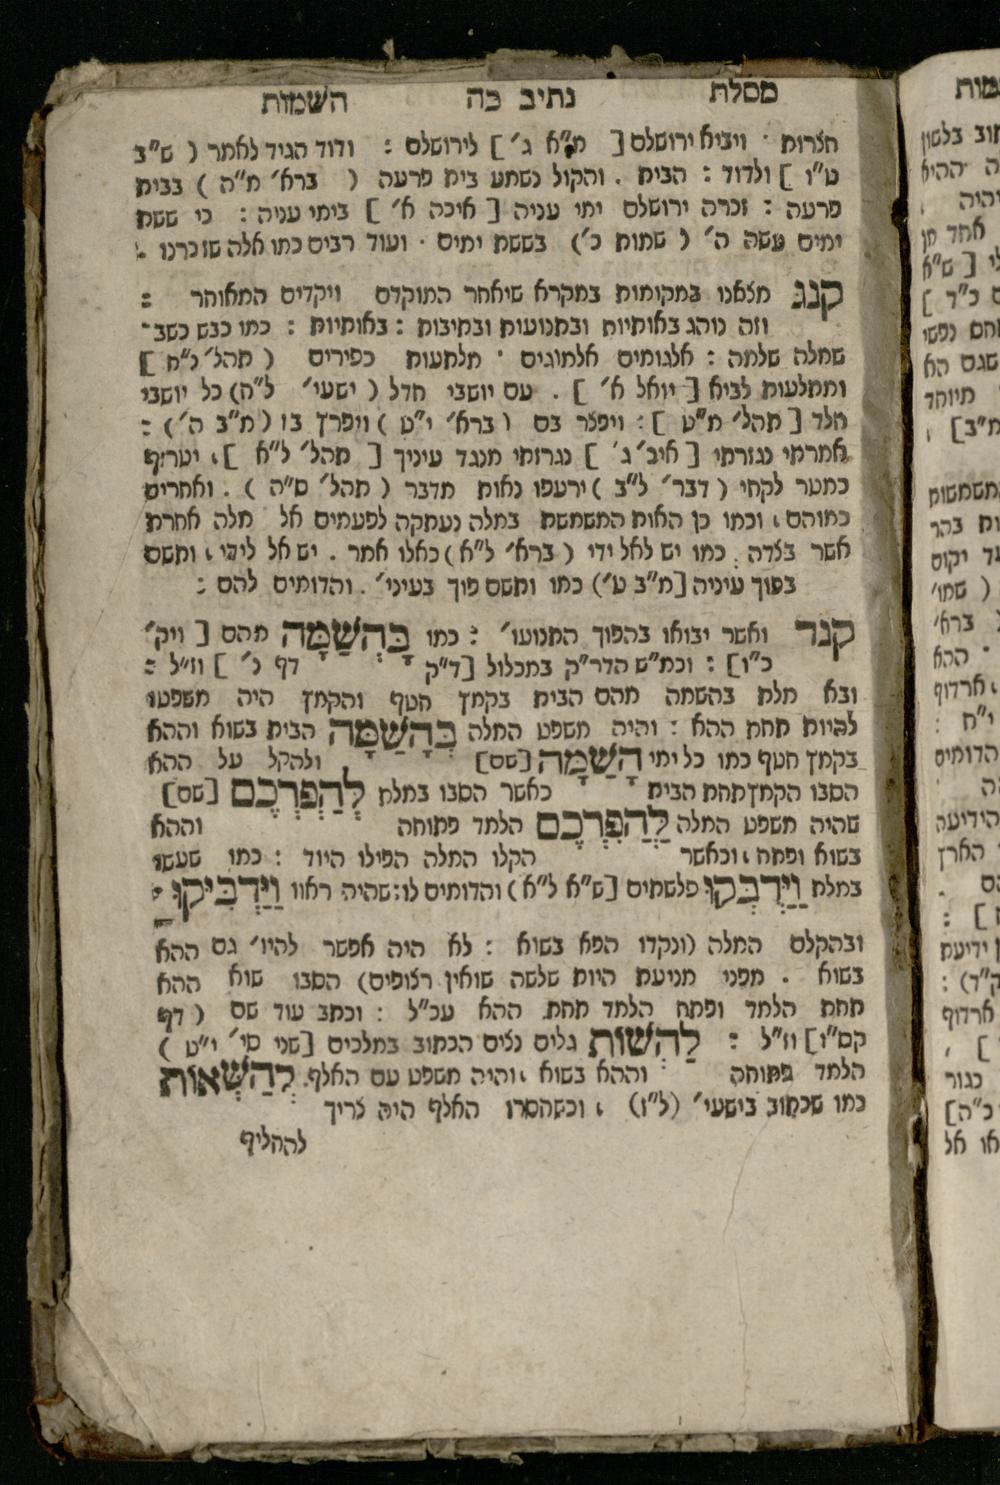 מסלת נתיב כה השמות
חצרות · ויביא ירושלם [ מ"א ג' ] לירושלם : ודוד הגיד לאמר ( ש"ב
ט"ו ] ולדוד : הבית . והקול נשמע בית פרעה ( ברא' מ"ה ) בבית
פרעה : זכרה ירושלם ימי עניה [ איכה א' ] בימי עניה : כי ששת
ימים עשה ה' ( שמות כ') בששת ימים · ועוד רבים כמו אלה שזכרנו :
קנג מצאנו במקומות במקרא שיאחר המוקדם ויקדים המאוחר :
וזה נוהג באותיות ובתנועות ובתיבות : באותיות : כמו כבש כשב ־
שמלה שלמה : אלגומים אלמוגים · מלתעות כפירים ( תהל' נ"ח ]
ומתלעות לביא [ יואל א' ] . עם יושבי חדל ( ישעי' ל"ח) כל יושבי
חלד [ תהל' מ"ט ] : ויפצר בם ( ברא' י"ט ) ויפרץ בו ( מ"ב ה') :
אמרתי נגזרתי [ איכ' ג' ] נגרזתי מנגד עיניך [ תהל' ל"א ] , יערוף
כמטר לקחי ( דבר' ל"ב ) ירעפו נאות מדבר ( תהל' ס"ה ) . ואחרים
כמוהם , וכמו כן האות המשמשת במלה נעתקה לפעמים אל מלה אחרת
אשר בצדה : כמו יש לאל ידי ( ברא' ל"א ) כאלו אמר . יש אל לידי , ותשם
בפוך עיניה [מ"ב ט') כמו ותשם פוך בעיני' . והדומים להם :
קנד ואשר יבואו בהפוך התנועו' : כמו בָּהְשַׁמָּה מהם [ ויק'
כ"ו ] : וכמ"ש הדר"ק במכלול [ד"ק דף נ' ] וז"ל :
ובא מלת בהשמה מהם הבית בקמץ חטף והקמץ היה משפטו
להיות תחת ההא : והיה משפט המלה בְּהָשַׁמָּה הבית בשוא וההא
בקמץ חטף כמו כל ימי הָשַׁמָּה [שם] ולהקל על ההא
הסבו הקמץ תחת הבית כאשר הסבו במלת לְהַפְרְכֶם [שם]
שהיה משפט המלה לַהֲפִרְכֶם הלמד פתוחה וההא
בשוא ופתח , וכאשר הקלו המלה הפילו היוד : כמו שעשו
במלת וַיַּדְבְּקוּ פלשתים [ש"א ל"א ) והדומים לו : שהיה ראוו וַיַּדְבִּיקוּ :
ובהקלם המלה (ונקדו הפא בשוא : לא היה אפשר להיו' גם ההא
בשוא . מפני מניעת היות שלשה שואין רצופים) הסבו שוא ההא
תחת הלמד ופתח הלמד תחת ההא עכ"ל : וכתב עוד שם ( דף
קס"ו ] וז"ל : לַהְשׁוֹת גלים נצים הכתוב במלכים [שני סי' י"ט )
הלמד פתוחה וההא בשוא , והיה משפט עם האלף . לְהַשְׁאוֹת
כמו שכתוב בישעי' (ל"ז) , וכשהסרו האלף היה צריך
להחליף